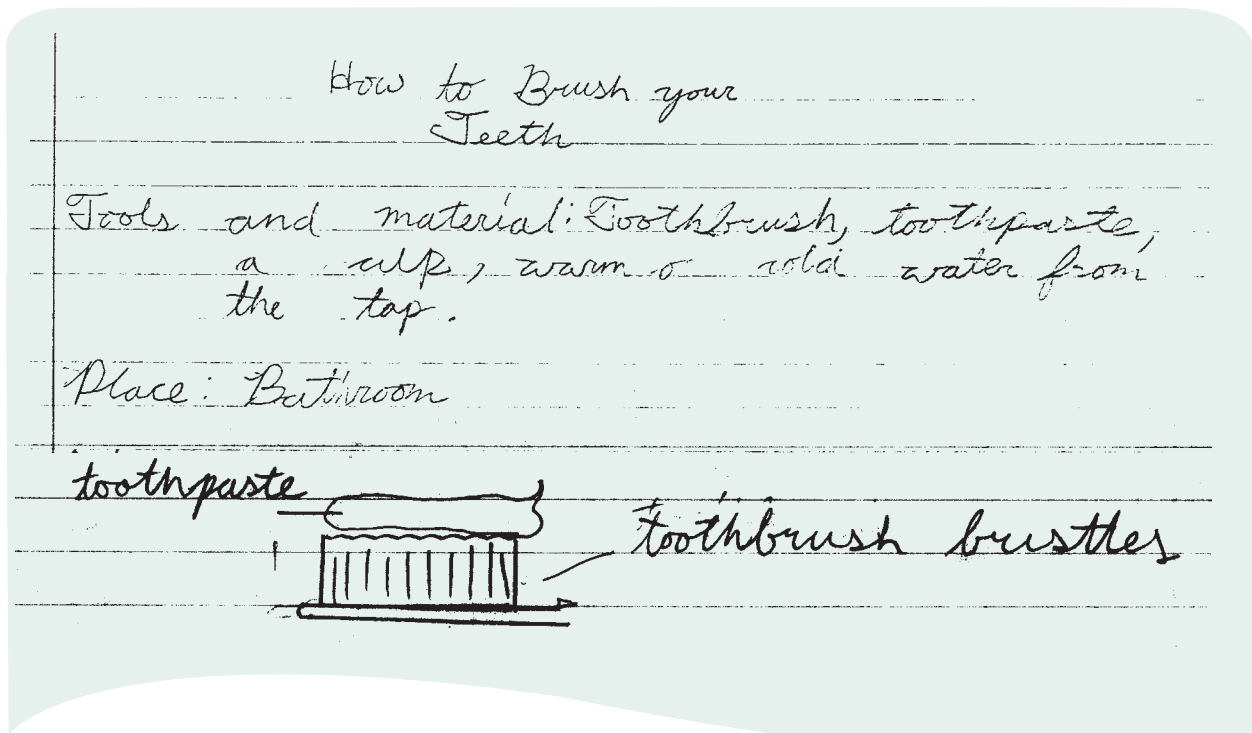 How to Brush your
Teeth
Tools and material: Toothbrush, toothpaste,
a cup, warm o cold water from
the tap.
Place: Bathroom
toothpaste
toothbrush brustles